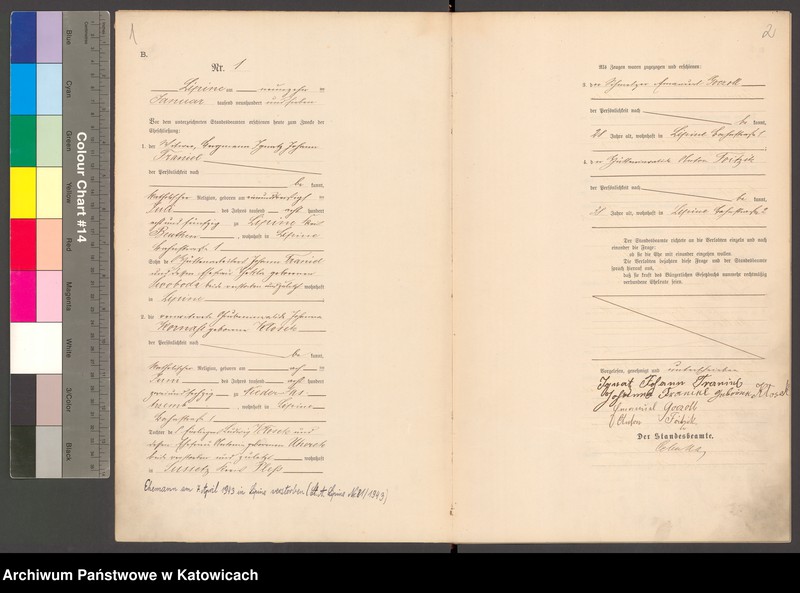 1
B.
Nr. 1
Lipine am neunzehn ten
Januar tausend neunhundert und sieben
Vor dem unterzeichneten Standesbeamten erschienen heute zum Zwecke der
Eheschließung:
1. der Witwer, Bergmann Ignatz Johann
Franiel
der Persönlichkeit nach
be kannt,
katholischer Religion, geboren am
Juli des Jahres tausend acht hundert
acht und fünfzig zu Lipine Kreis
Beuthen, wohnhaft in Lipine
Bahnstraße 1
Sohn des Hüttenarbeiters Johann Franiel
und dessen Ehefrau Thekla geborenen
Swoboda beide verstorben und zuletzt wohnhaft
in Lipine
2. die verwitwete Johanna
geborene Klosek
der Persönlichkeit nach
be kannt,
katholischer Religion, geboren am ach ten
Juni des Jahres tausend acht hundert
zwei und sechzig zu Nieder
, wohnhaft in Lipine
Bahnstraße 1
Tochter des Ludwig Klosek und
dessen Ehefrau geborenen
beide verstorben und zuletzt wohnhaft
in Kreis Pleß
Ehemann am 7. April 1943 in Lipine verstorben (St. A. Lipine Nr. 81/1943)
2
Als Zeugen waren zugezogen und erschienen:
3. der Schmelzer Emanuel Goczoll
der Persönlichkeit nach
be kannt,
Jahre alt, wohnhaft in Lipine Bahnstraße 1
4. der Anton Foitzik
der Persönlichkeit nach
be kannt,
Jahre alt, wohnhaft in Lipine Bahnstraße 2
Der Standesbeamte richtete an die Verlobten einzeln und nach
einander die Frage:
ob sie die Ehe mit einander eingehen wollen.
Die Verlobten bejahten diese Frage und der Standesbeamte
sprach hierauf aus,
daß sie kraft des Bürgerlichen Gesetzbuchs nunmehr rechtmäßig
verbundene Eheleute seien.
Vorgelesen, genehmigt und unterschrieben
Ignat Johann Franiel
Johanna Franiel geborene Klosek
Emanuel Goczoll
Anton Foitzik
Der Standesbeamte.
Colour Chart #14
Blue
Cyan
Green
Yellow
Red
Magenta
White
3/Color
Black
Archiwum Państwowe w Katowicach